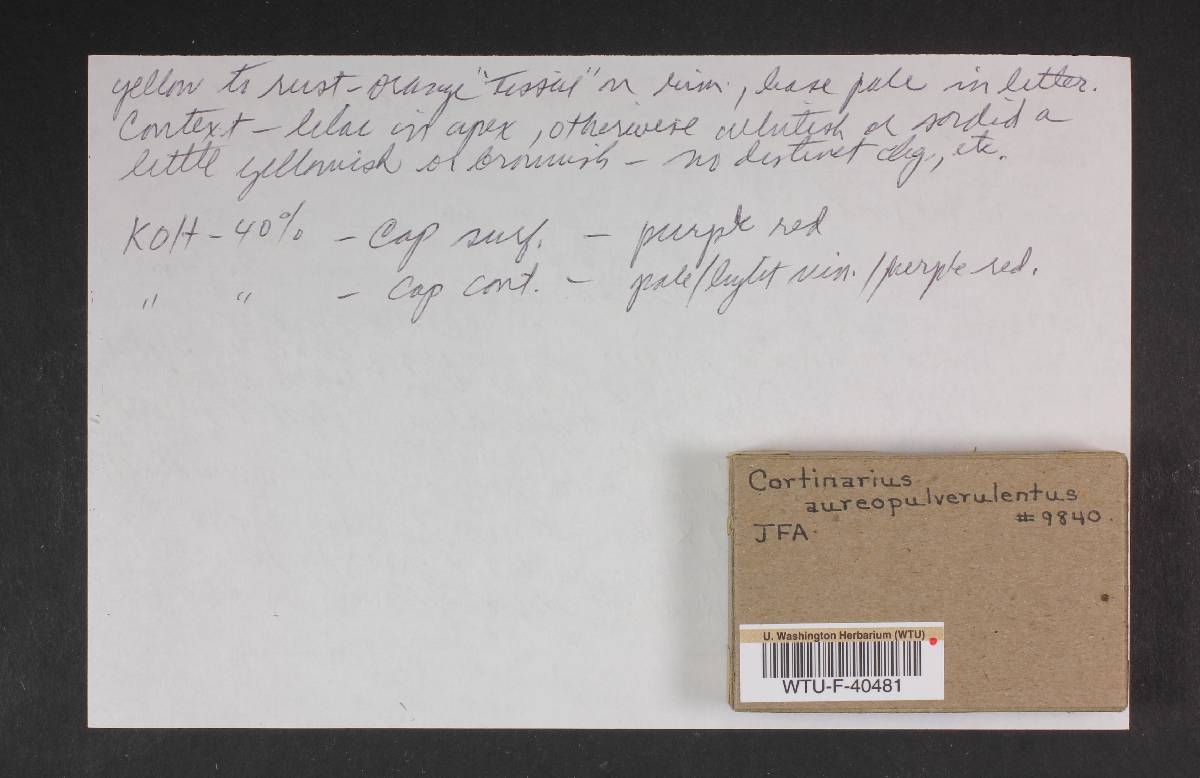 yellow to rust-orange "tissue" on rim, base pale in litter.
Context - lilac in apex, otherwise whitish or sordid a
little yellowish or brownish - no distinct chg, etc.
KOH - 40% - Cap surf. - purple red
" " - Cap cont. - pale/light vin./purple red.
Cortinarius
aureopulverulentus
#9840.
JFA.
U. Washington Herbarium (WTU)
WTU-F-40481